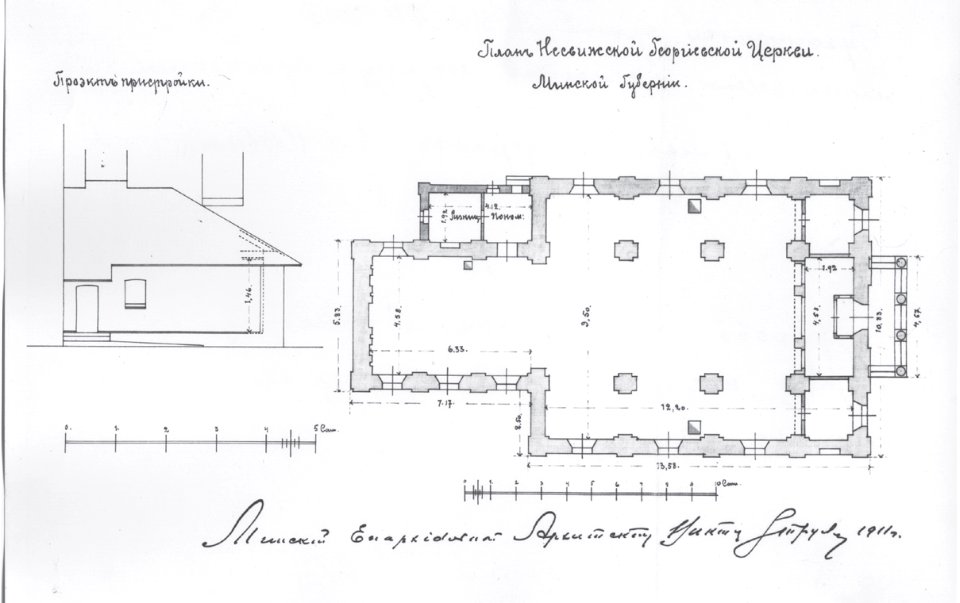 Планъ Несвижской Георгіевской Церкви.
Минской Губерніи.
Проэктъ пристройки.
1,46.
0. 1 2 3 4 5 Саж.
4.12.
1.92
Поном:
5.83.
4.58.
6.33.
7.17
9.50.
8.50.
12,20.
13,58.
1.92
4,58
10,83.
4,67
0 1 2 3 4 5 6 7 8 9 10 Саж.
Минскій Епархіальный Архитекторъ 1911г.